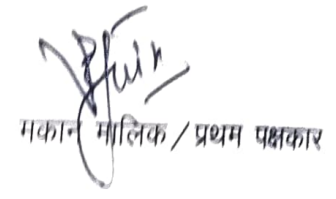 मकान मालिक / प्रथम पक्षकार